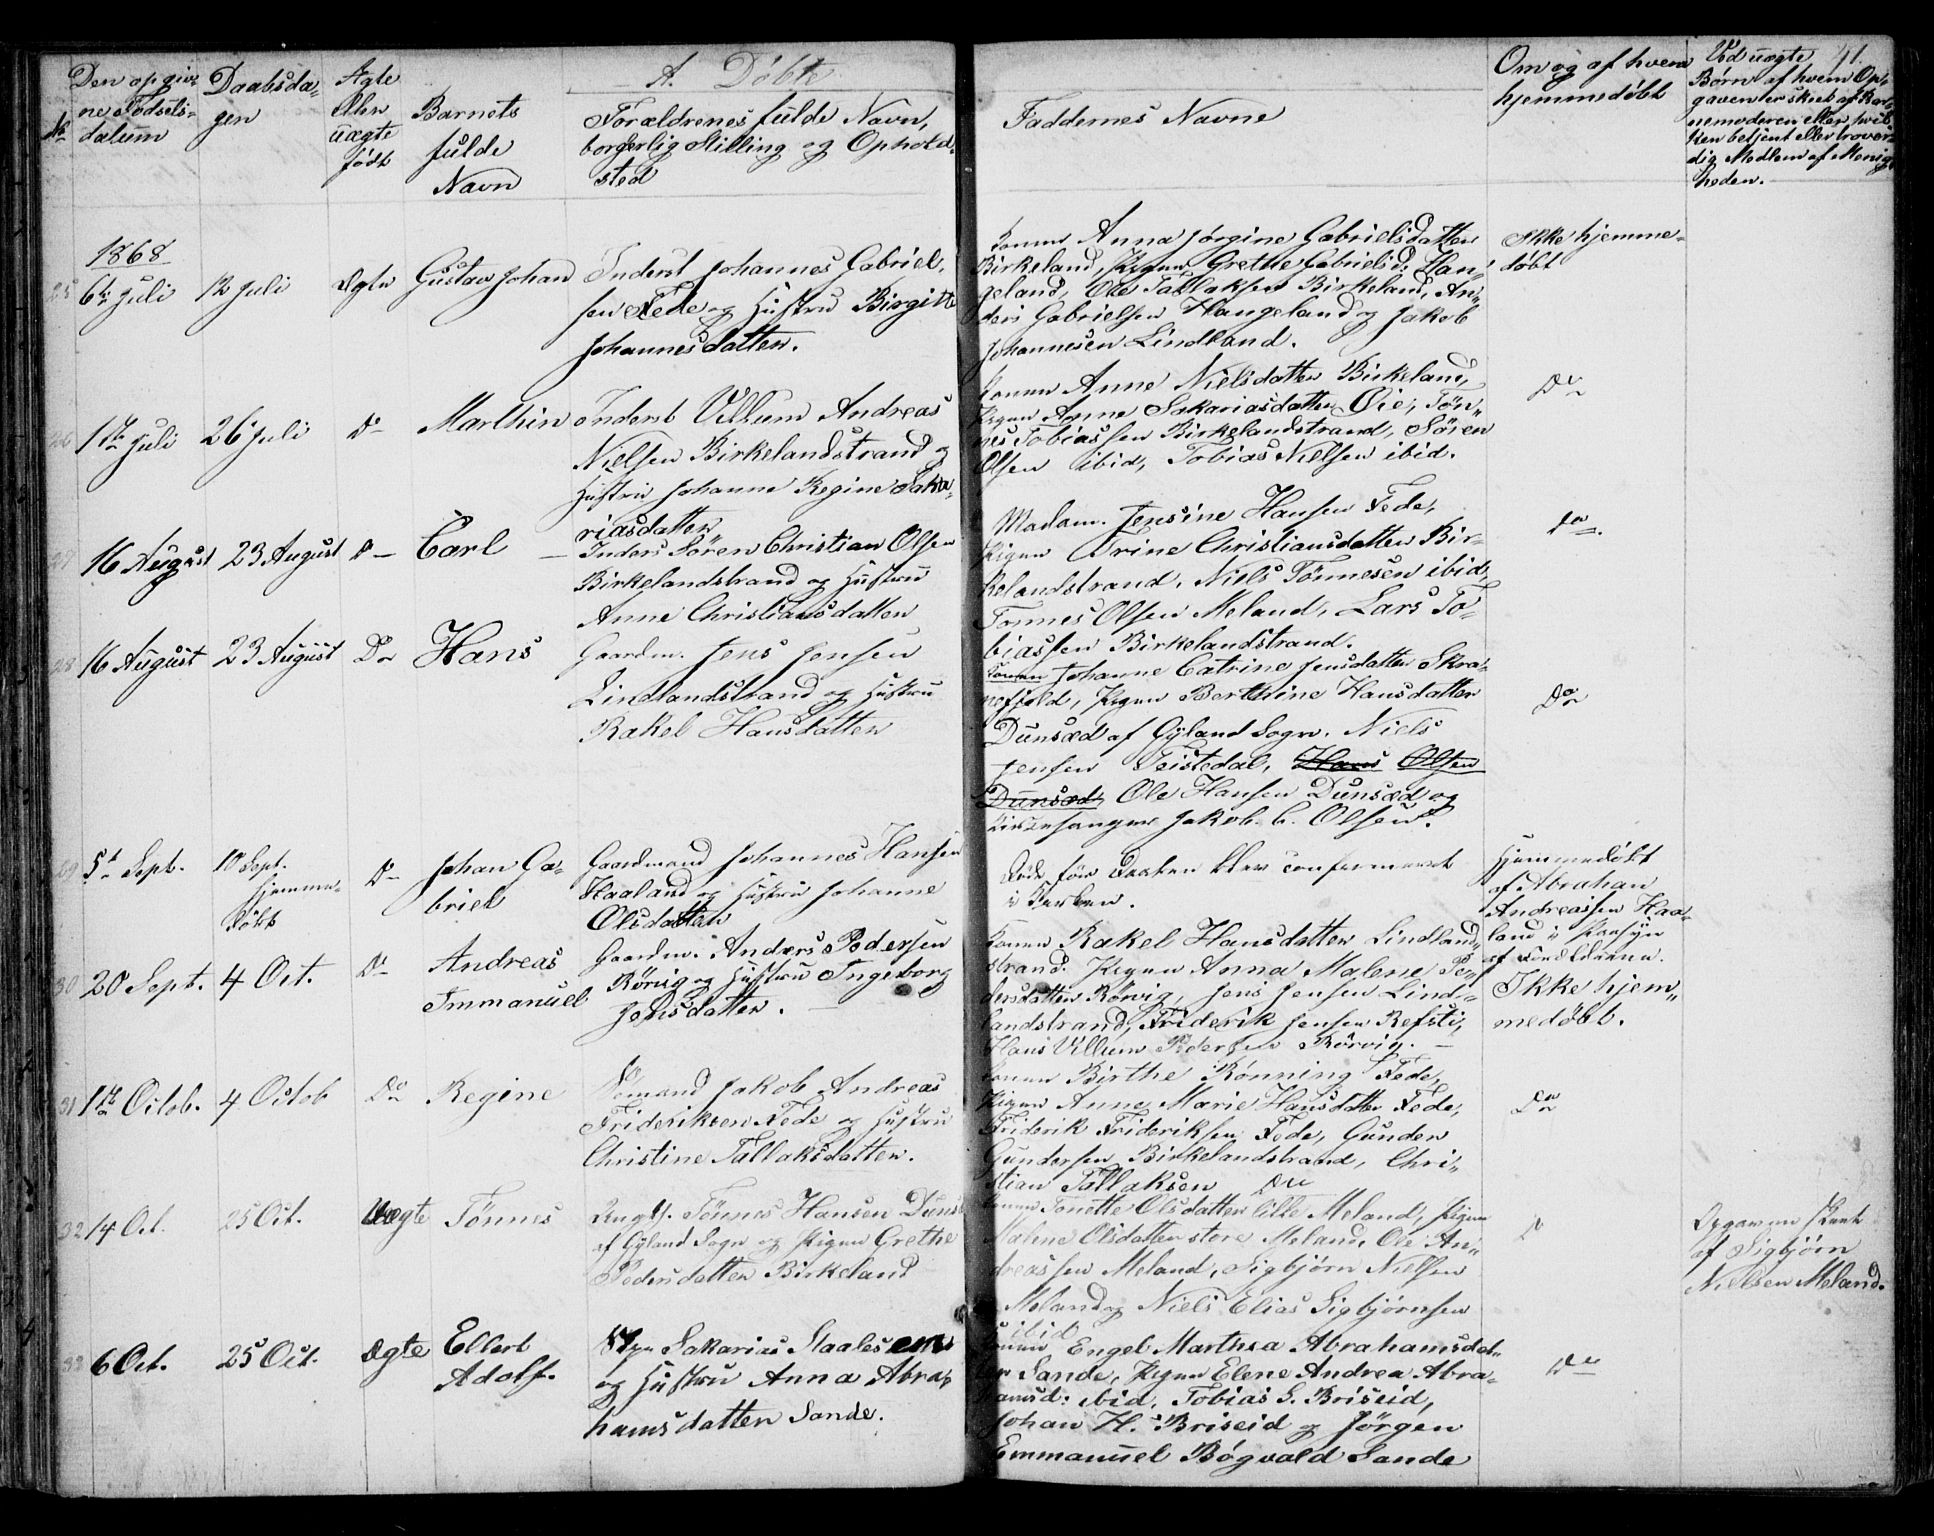 41.
A. Døbte
No
Den opgiv-
ne Fødsels-
datum
Daabsda-
gen
Ægte
eller
uægte
født
Barnets
fulde
Navn
Forældrenes fulde Navn,
borgerlig Stilling og Ophold-
sted
Faddernes Navne
Om og af hvem
hjemmedøbt
Ved uægte
Børn af hvem Op-
gaven er skeet af Bar-
nemoderen eller hvil-
ken betjent eller trover-
dig Medlem af Menig-
heden.
1868
25
6te Juli
12 Juli
Ægte
Gustav Johan
Inderst Johannes Gabriel-
sen Fede og Hustru Birgitte
Johannesdatter.
Konen Anna Jørgine Gabrielsdatter
Birkeland, Pigen Grethe Gabrielsd: Han-
geland, Ole Tallaksen Birkeland, An-
ders Gabrielsen Hangeland og Jakob
Johannesen Lindland.
Ikke hjemme-
døbt
26
17de Juli
26 Juli
Do
Marthin
Inderst Villum Andreas
Nielsen Birkelandstrand og
Hustru Johanne Regine Saka-
riasdatter
Konen Anne Nielsdatter Birkeland,
Pigen Anne Sakariasdatter Øie, Tøn-
nes Tobiassen Birkelandstrand, Sören
Olsen ibid, Tobias Nielsen ibid.
Do
27
16 August
23 August
Do
Carl
Inders Sören Christian Olsen
Birkelandstrand og Hustru
Anne Christiansdatter
Madam. Jensine Hansen Fede,
Pigen Trine Christiansdatter Bir-
kelandstrand, Niels Tönnesen ibid,
Tønnes Olsen Meland, Lars To-
biassen Birkelandstrand.
Do.
28
16 August
23 August
Do
Hans
Gaardm. Jens Jensen
Lindlandstrand og Hustru
Rakel Hansdatter
Konen Johanne Catrine Jensdatter Skra-
nefjeld, Pigen Berthine Hansdatter
Dunsæd af Gyland Sogn. Niels
Jensen Teistedal, Hans Olsen
Dunsæd, Ole Hansen Dunsæd og
Kirkesanger Jakob. C. Olsen.
Do
29
5te Sept.
10 Sept.
Hjemme-
døbt
Do
Johan Ga-
briel
Gaardmand Johannes Hansen
Haaland og Hustru Johanne
Olsdatter
Døde før Daaben blev confermeret
i Kirken.
Hjemmedøbt
af Abraham
Andreassen Haa-
land i Paasyn
af Forældrene.
30
20 Sept.
4 Oct.
Do
Andreas
Immanuel
Gaardm. Anders Pedersen
Rörvig og Hustru Ingeborg
Jensdatter.
Konen Rakel Hansdatter Lindland-
strand. Pigen Anna Malene Pe-
dersdatter Rörvig, Jens Jensen Lind-
landstrand, Friderik Jensen Refsti,
Hans Villum Pedersen Rörvig.
Ikke hjem-
medøbt.
31
1te Octob.
4 Octob
Do
Regine
Sømand Jakob Andreas
Frideriksen Fede og Hustru
Christine Tallaksdatter.
Konen Birthe Rønning Fede,
Pigen Anne Marie Hansdatter Fede,
Friderik Frideriksen Fede, Gunder
Gundersen Birkelandstrand, Chri-
stian Tallaksen Do
Do
32
14 Oct.
25 Oct.
Uægte
Tønnes
Ungk. Tønnes Hansen Duns
af Gyland Sogn og Pigen Grethe
Pedersdatter Birkeland
Konen Tonette Olsdatter lille Meland, Pigen
Malene Olsdatter store Meland, Ole An-
dreassen Meland, Sigbjørn Nielsen
Meland og Niels Elias Sigbjørnsen
ibid
D
Opgaven skeet
af Sigbjørn
Nielsen Meland.
33
6 Oct.
25 Oct.
Ægte
Ellert
Adolf.
Sakarias Staalesen
og Hustru Anna Abra-
hamsdatter Sande.
Konen Engel Marthea Abrahamsdat-
ter Sande, Pigen Elene Andrea Abra-
hamsd: ibid, Tobias G. Briseid,
Johan H. Briseid og Jörgen
Emmanuel Bøgvald Sande
Do